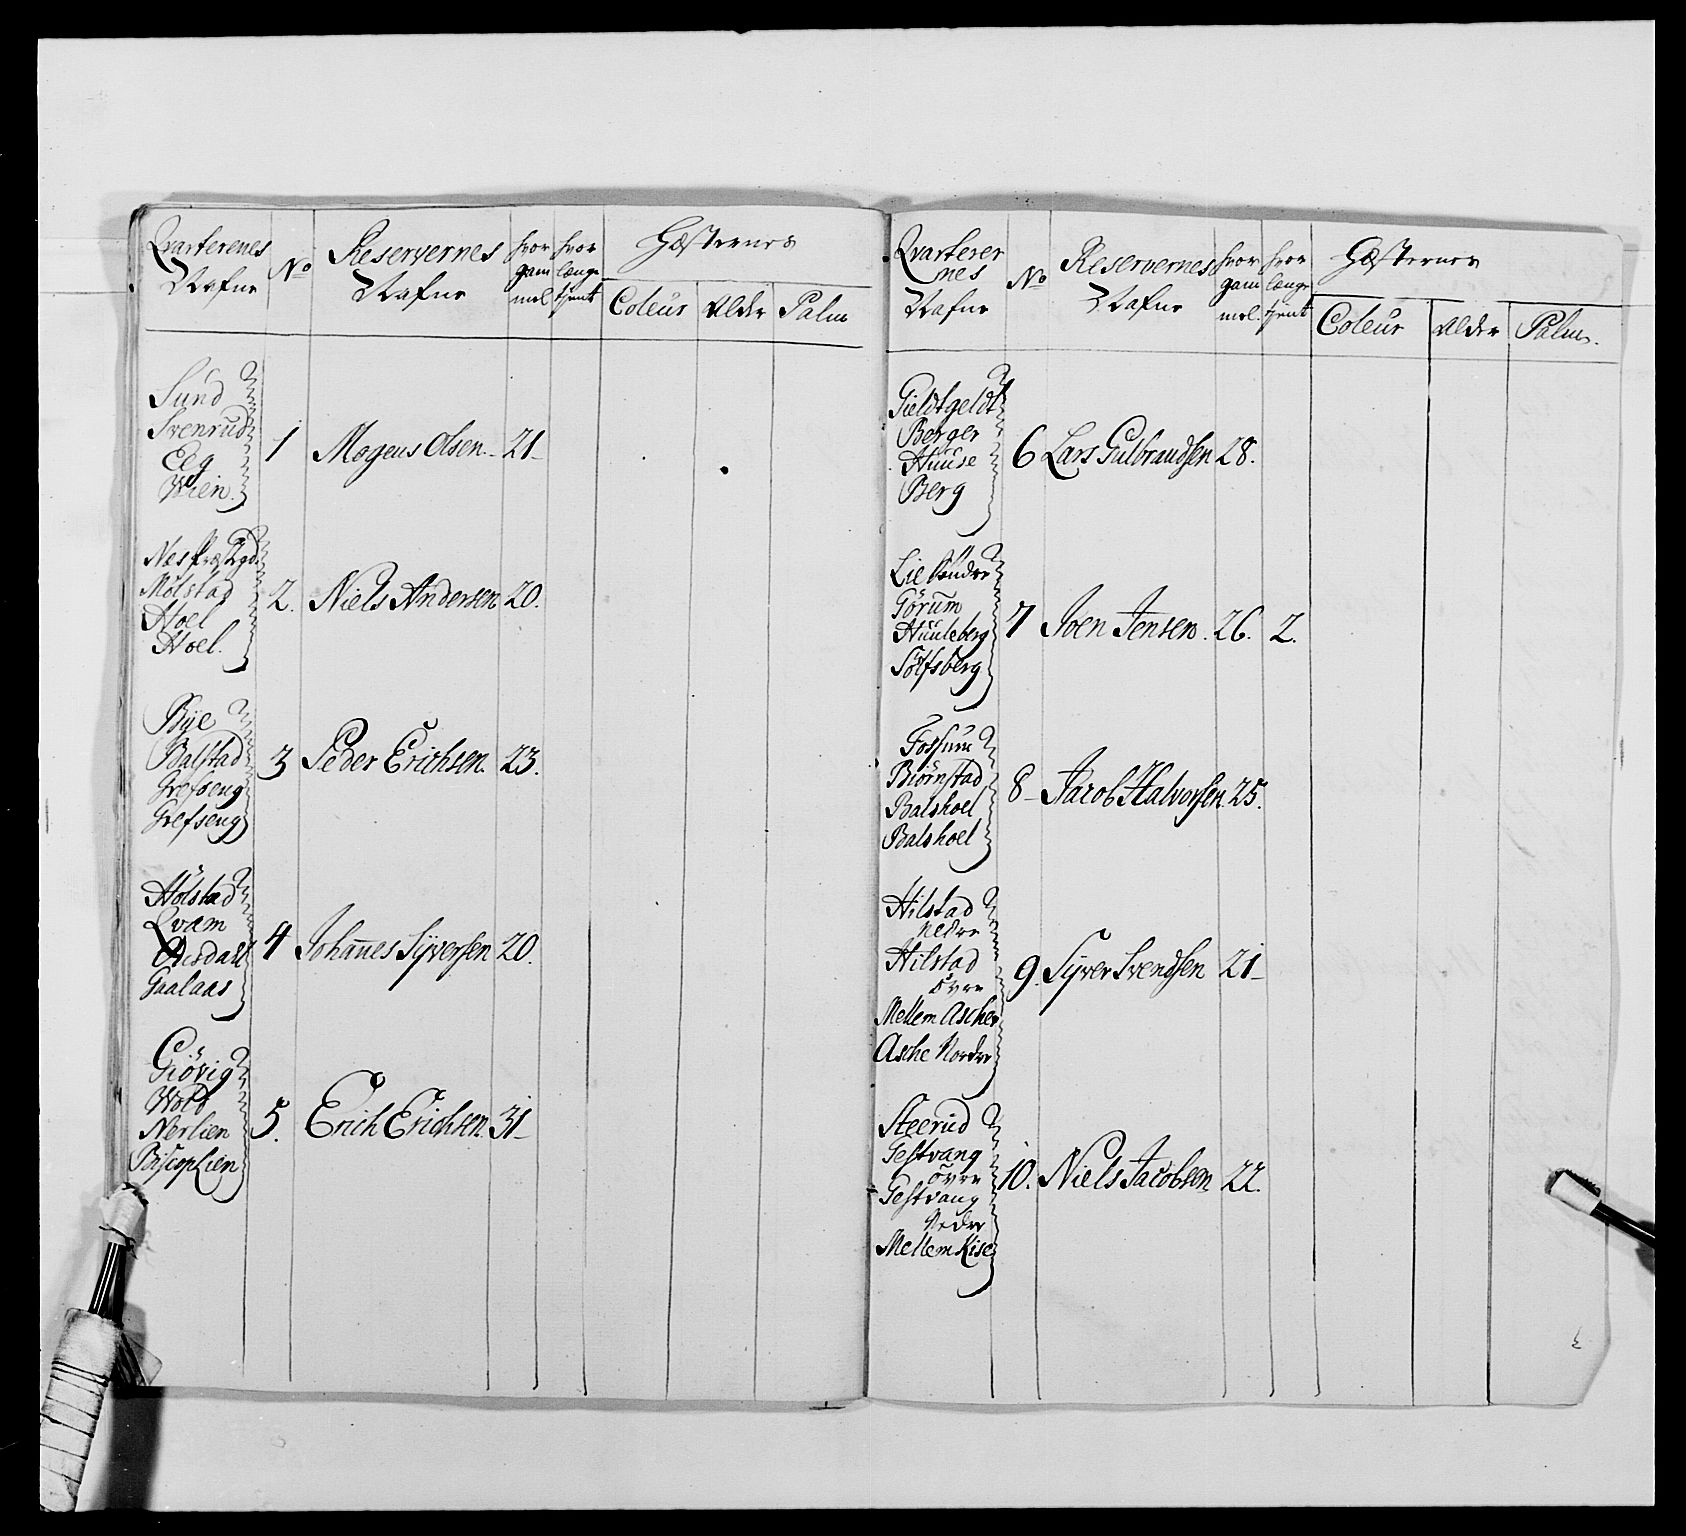 Qvarterenes
Nafne
No
Reservernes
Nafne
hvor
gam
mel
hvor
længe
tjent
Hæsternes
Coleur Alder Palm
Sund
Svenrud
Eeg
Wien.
1 Mogens Olsen. 21
Næs Præstgd.
Molstad
Hoel
Hoel.
2. Niels Andersen 20.
Bye
Balstad
Grefseng
Grefseng
3 Peder Erichsen. 23.
Holstad
Qvam
Gaalaas
4 Johannes Syversen 20.
Giövig
Wold
Nerlien
Biscoplien
5. Erich Erichsen. 31
Qvarterer
nes
Nafne
No
Reservernes
Nafne
hvor
gam
mel.
hvor
længe
tjent
Hæsternes
Coleur Alder Palm.
Gieldtgeldt
Berger
Huuse
Berg
6 Lars Gulbrandsen 28.
Lie Söndre
Görum
Huuleberg
Sölfsberg
7 Joen Jensen. 26. 2.
Fossum
Biörnstad
Balshoel
Balshoel
8 Jacob Halvorsen. 25.
Hilstad
nedre
Hilstad
övre
Mellem Ascher
Asche Nordre
9. Syver Svendsen 21
Steerud
Testvang
övre
Testvang
Nedre
Mellem Kise
10. Niels Jacobsen 22.